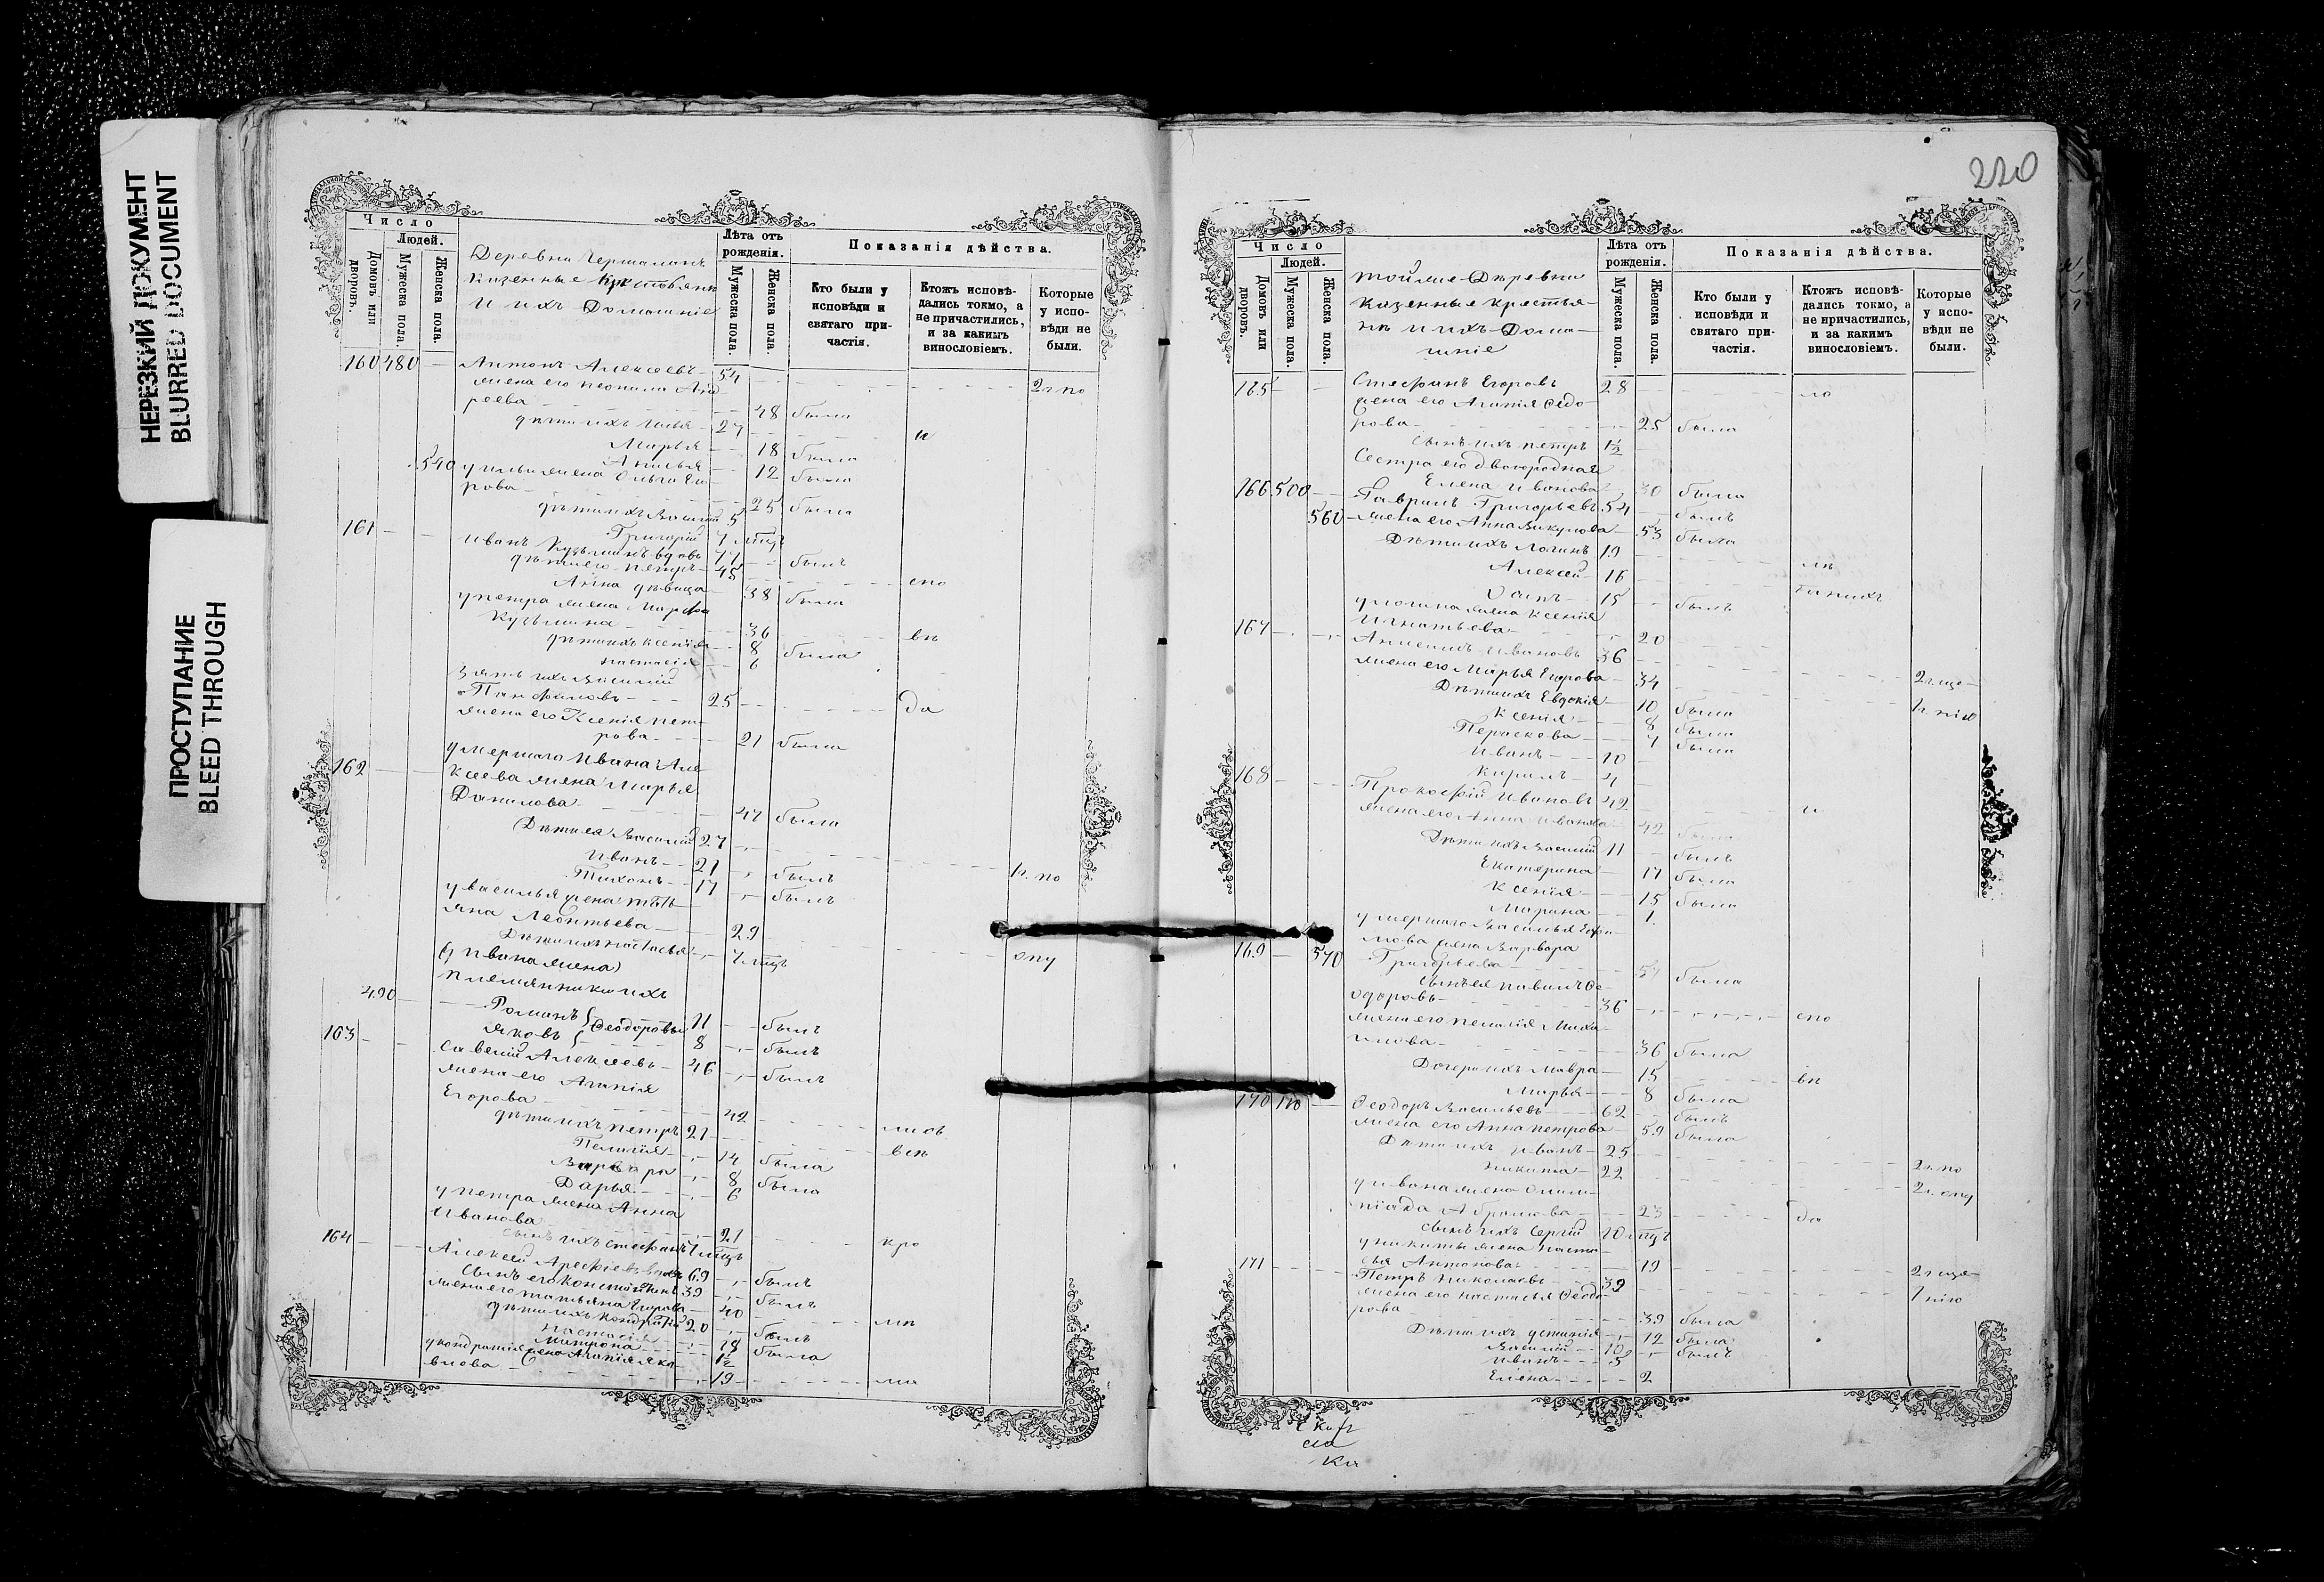 НЕРЕЗКИЙ ДОКУМЕНТ
BLURRED DOCUMENT
ПРОСТУПАНИЕ
BLEED THROUGH
Число
Людей.
Домовъ или дворовъ.
Мужеска пола.
Женска пола.
Деревни
казенные
и ихъ Домашніе
Лѣта отъ рожденія.
Мужеска пола.
Женска пола.
Показанія дѣйства.
Кто были у исповѣди и святаго причастія.
Ктожъ исповѣдались токмо, а не причастились, и за какимъ винословіемъ.
Которые у исповѣди не были.
160 480 Антонъ Алексѣевъ 54
жена его
48 была
дѣти ихъ Илья 27
Марья 18 была
540 Анисья 12 была
у ильи жена Ольга Его-
рова 25 была
дѣти ихъ Василій 5
Григорій
161 иванъ Кузьминъ вдовъ был
дѣти его петръ 45
Анна дѣвица 38 была
у петра жена Марфа
Кузьмина 36
дѣти ихъ ксенія 8 была
настасія 6
Зять ихъ василій
Панфиловъ 25
жена его Ксенія пет-
рова 21 была
162 умершаго Ивана Але-
ксеева жена Марья
Данилова 47 была
Дѣти ея Василій 27
Иванъ 21 былъ
Тихонъ 17 былъ
у василья жена тать-
яна Леонтьева 29
Дѣти ихъ настасья
(у ивана жена)
племянники ихъ
490 Романъ Ѳеодоровы 11 былъ
яковъ 8 былъ
163 Савелій Алексѣевъ 46 былъ
жена его Агапія
Егорова 42
дѣти ихъ петръ 21
Пелагія 14 была
Варвара 8 была
Дарья 6
у петра жена Анна
Иванова 21
сынъ ихъ стефанъ
164 Алексей 69 былъ
Сынъ его константинъ 39 былъ
жена его татьяна Егорова 40
дѣти ихъ кондратій 20 былъ
настасія 18 была
Матрона 1½
у кондратія жена Агапія яко-
влева 19
220
Число
Людей.
Домовъ или дворовъ.
Мужеска пола.
Женска пола.
тойже Деревни
казенные крестья-
не и ихъ Дома-
шніе
Лѣта отъ рожденія.
Мужеска пола.
Женска пола.
Показанія дѣйства.
Кто были у исповѣди и святаго причастія.
Ктожъ исповѣдались токмо, а не причастились, и за какимъ винословіемъ.
Которые у исповѣди не были.
165 Стефанъ Егоровъ 28
жена его Агапія Ѳедо-
рова 25 была
сынъ ихъ петръ 1½
Сестра его двоюродная
Елена иванова 30 была
166 500 Гаврилъ Григорьевъ 54 былъ
560 жена его Анна Викулова 53 была
Дѣти ихъ Логинъ 19
Алексей 16
Осипъ 15 былъ
у логина жена ксенія
Игнатьева 20
167 Анисимъ Ивановъ 36
жена его Марья Егорова 34
Дѣти ихъ Евдокія 10 была
ксенія 8 была
Параскова 7 была
иванъ 10
Кирилъ 4
168 Прокофій Ивановъ 42
жена его Анна иванова 42 была
Дѣти ихъ василій 11 былъ
Екатерина 17 была
ксенія 15 была
Марина 1
умершаго василья Ефи-
мова жена Варвара
169 570 Григорьева 57 была
сынъ ея павилъ Ѳе-
одоровъ 36
жена его пелагія Миха-
илова 36 была
Дочери ихъ мавра 15
Марья 8 была
170 Ѳеодоръ Васильевъ 62 былъ
жена его Анна петрова 59 была
Дѣти ихъ иванъ 25
никита 22
у ивана жена Олим-
піада Абрамова 23
сынъ ихъ Сергій
у никиты жена наста-
сья Антонова 19
171 Петръ николаевъ 39
жена его настасья Ѳеодо-
рова 39 была
Дѣти ихъ устинія 12 была
василій 10 былъ
иванъ 5
Елена 2